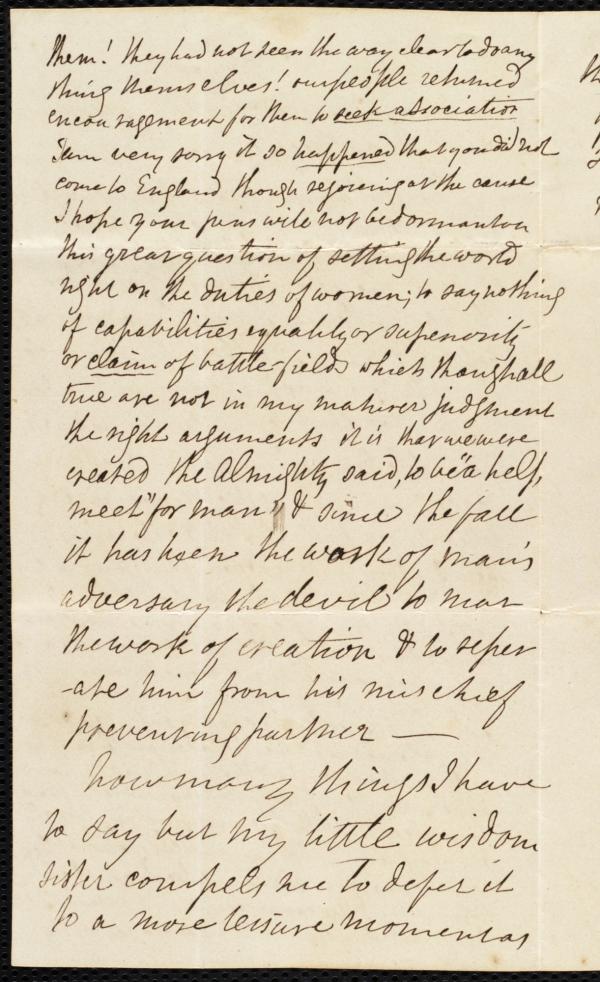 them! they had not seen the way clear to do any
thing themselves! our people returned
encouragement for them to seek association
I am very sorry it so happened that you did not
come to England though rejoicing at the cause
I hope your pens will not be dormant on
this great question of setting the world
right on the duties of women; to say nothing
of capabilities equality or superiority
or claim of battle-fields which though all
true are not in my maturer judgment
the right arguments it is that we were
created the Almighty said, to be "a help,
meet" for man" & since the fall
it has been the work of man's
adversary the devil to mar
the work of creation & to seper
-ate him from his mischief
preventing partner —
how many things I have
to say but my little wisdom
sister compels me to defer it
to a more leisure moment as